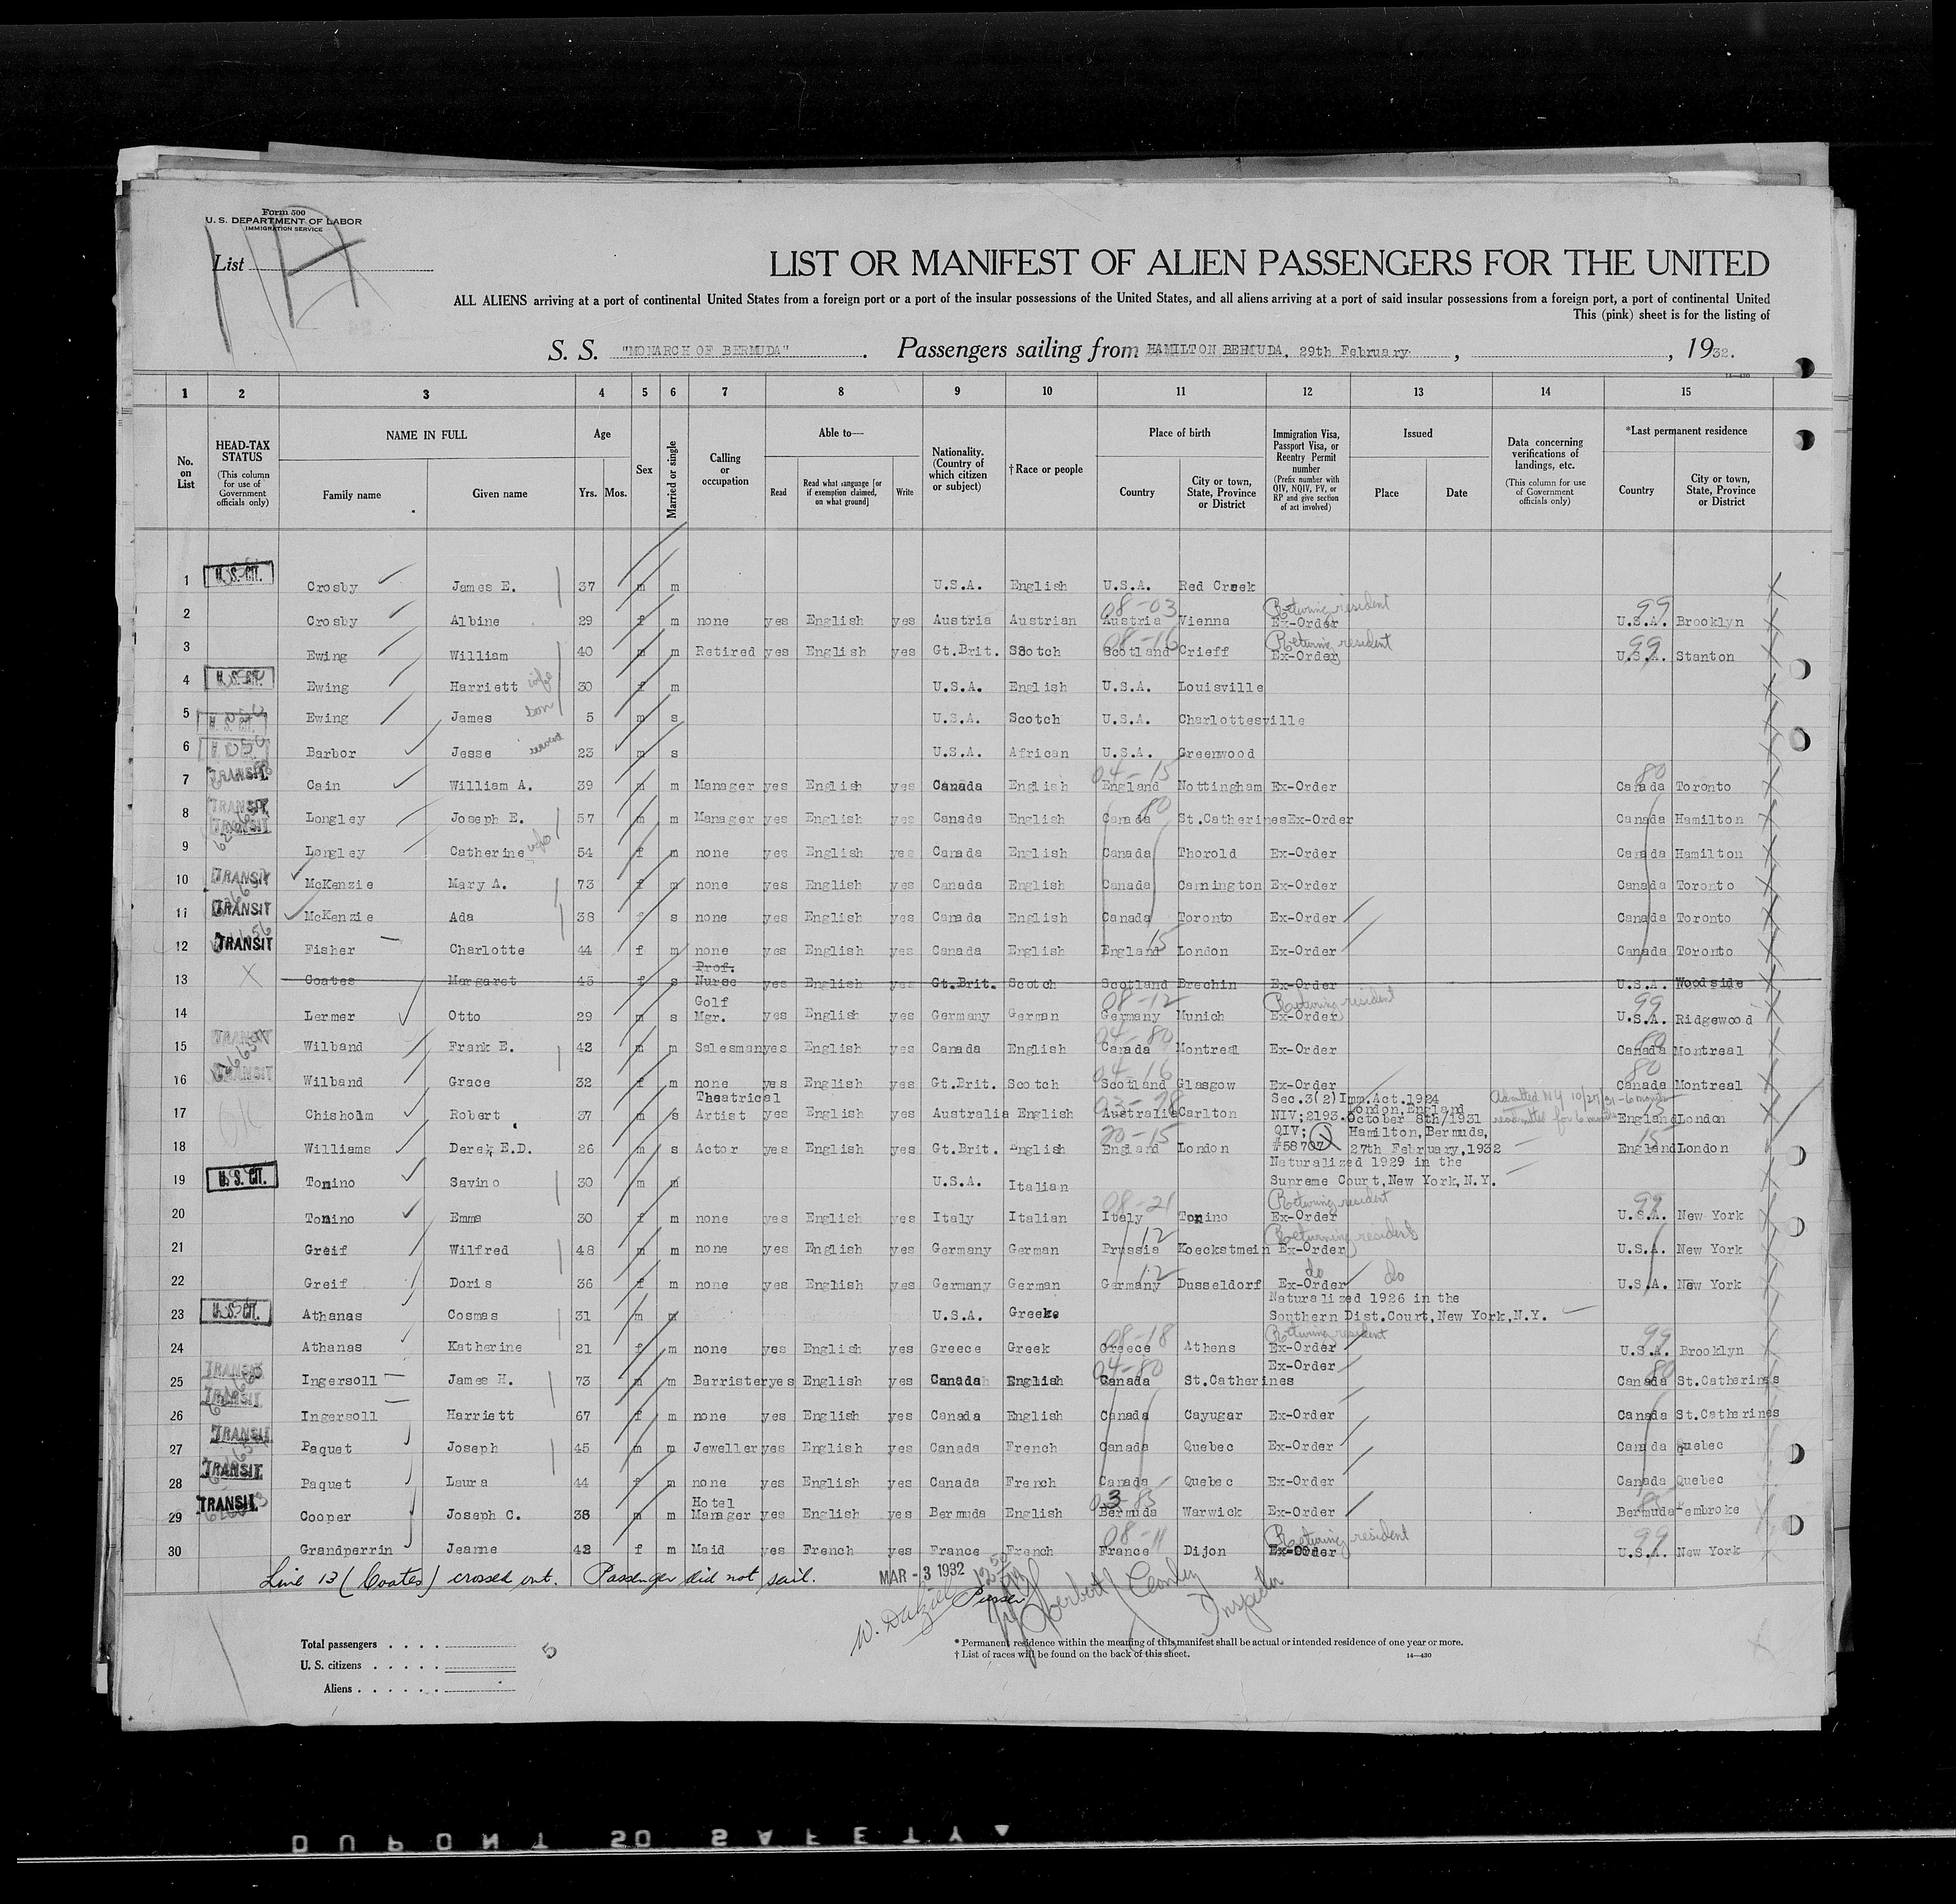 Form 500
U. S. DEPARTMENT OF LABOR
IMMIGRATION SERVICE
List
LIST OR MANIFEST OF ALIEN PASSENGERS FOR THE UNITED
ALL ALIENS arriving at a port of continental United States from a foreign port or a port of the insular possessions of the United States, and all aliens arriving at a port of said insular possessions from a foreign port, a port of continental United
This (pink) sheet is for the listing of
S. S. "MONARCH OF BERMUDA". Passengers sailing from HAMILTON BERMUDA, 29th February, , 1932.
14—430
1 2 3 4 5 6 7 8 9 10 11 12 13 14 15
No. on List
HEAD-TAX STATUS (This column for use of Government officials only)
NAME IN FULL
Family name Given name
Age
Yrs. Mos.
Sex
Married or single
Calling or occupation
Able to—
Read Read what language [or if exemption claimed, on what ground] Write
Nationality. (Country of which citizen or subject)
†Race or people
Place of birth
Country City or town, State, Province or District
Immigration Visa, Passport Visa, or Reentry Permit number (Prefix number with QIV, NQIV, PV, or RP and give section of act involved)
Issued
Place Date
Data concerning verifications of landings, etc. (This column for use of Government officials only)
*Last permanent residence
Country City or town, State, Province or District
1 U. S. CIT. Crosby James E. 37 m m U.S.A. English U.S.A. Red Creek
08-03 Returning resident 99
2 Crosby Albine 29 f m none yes English yes Austria Austrian Austria Vienna Ex-Order U.S.A. Brooklyn
08-16 Returning resident 99
3 Ewing William 40 m m Retired yes English yes Gt.Brit. Scotch Scotland Crieff Ex-Order U.S.A. Stanton
4 U. S. CIT. Ewing Harriett wife 30 f m U.S.A. English U.S.A. Louisville
5 U. S. CIT. Ewing James son 5 m s U.S.A. Scotch U.S.A. Charlottesville
6 Barbor Jesse servant 23 m s U.S.A. African U.S.A. Greenwood
04-15 80
7 TRANSIT Cain William A. 39 m m Manager yes English yes Canada English England Nottingham Ex-Order Canada Toronto
80
8 TRANSIT TRANSIT Longley Joseph E. 57 m m Manager yes English yes Canada English Canada St.Catherines Ex-Order Canada Hamilton
9 Longley Catherine wife 54 f m none yes English yes Canada English Canada Thorold Ex-Order Canada Hamilton
10 TRANSIT McKenzie Mary A. 73 f m none yes English yes Canada English Canada Cannington Ex-Order Canada Toronto
11 TRANSIT McKenzie Ada 38 f s none yes English yes Canada English Canada Toronto Ex-Order Canada Toronto
15
12 TRANSIT Fisher Charlotte 44 f m none yes English yes Canada English England London Ex-Order Canada Toronto
13 X Coates Margaret 45 f s Prof. Nurse yes English yes Gt.Brit. Scotch Scotland Brechin Ex-Order U.S.A. Woodside
08-12 Returning resident 99
14 Lermer Otto 29 m s Golf Mgr. yes English yes Germany German Germany Munich Ex-Order U.S.A. Ridgewood
04-80 80
15 TRANSIT Wilband Frank E. 43 m m Salesman yes English yes Canada English Canada Montreal Ex-Order Canada Montreal
04-16 80
16 TRANSIT Wilband Grace 32 f m none yes English yes Gt.Brit. Scotch Scotland Glasgow Ex-Order Canada Montreal
17 OK Chisholm Robert 37 m s Theatrical Artist yes English yes Australia English Australia Carlton Sec.3(2)Imm.Act.1924 NIV;2193. London,England October 8th/1931 Admitted NY 10/27/31 - 6 months readmitted for 6 months 15 England London
20-15 15
18 Williams Derek E.D. 26 m s Actor yes English yes Gt.Brit. English England London QIV; #58707 Hamilton,Bermuda, 27th February,1932 England London
19 U. S. CIT. Tonino Savino 30 m m U.S.A. Italian Naturalized 1929 in the Supreme Court,New York,N.Y.
08-21 Returning resident 99
20 Tonino Emma 30 f m none yes English yes Italy Italian Italy Tonino Ex-Order U.S.A. New York
12 Returning resident
21 Greif Wilfred 48 m m none yes English yes Germany German Prussia Koeckstmein Ex-Order U.S.A. New York
12 do do
22 Greif Doris 36 f m none yes English yes Germany German Germany Dusseldorf Ex-Order U.S.A. New York
23 U. S. CIT. Athanas Cosmas 31 m m U.S.A. Greek Naturalized 1926 in the Southern Dist.Court,New York,N.Y.
08-18 Returning resident 99
24 Athanas Katherine 21 f m none yes English yes Greece Greek Greece Athens Ex-Order U.S.A. Brooklyn
04-80 80
25 TRANSIT Ingersoll James H. 73 m m Barrister yes English yes Canada English Canada St.Catherines Ex-Order Canada St.Catherines
26 TRANSIT Ingersoll Harriett 67 f m none yes English yes Canada English Canada Cayugar Ex-Order Canada St.Catherines
27 TRANSIT Paquet Joseph 45 m m Jeweller yes English yes Canada French Canada Quebec Ex-Order Canada Quebec
28 TRANSIT Paquet Laura 44 f m none yes English yes Canada French Canada Quebec Ex-Order Canada Quebec
03-85 85
29 TRANSIT Cooper Joseph C. 38 m m Hotel Manager yes English yes Bermuda English Bermuda Warwick Ex-Order Bermuda Pembroke
08-11 Returning resident 99
30 Grandperrin Jeanne 42 f m Maid yes French yes France French France Dijon Ex-Order U.S.A. New York
Line 13 (Coates) crossed out. Passenger did not sail. MAR - 3 1932
W. Dalziell Purser Inspector
Total passengers . . . .
U. S. citizens . . . . .
Aliens . . . . . .
5
* Permanent residence within the meaning of this manifest shall be actual or intended residence of one year or more.
† List of races will be found on the back of this sheet. 14—430
DUPONT 50 SAFETY